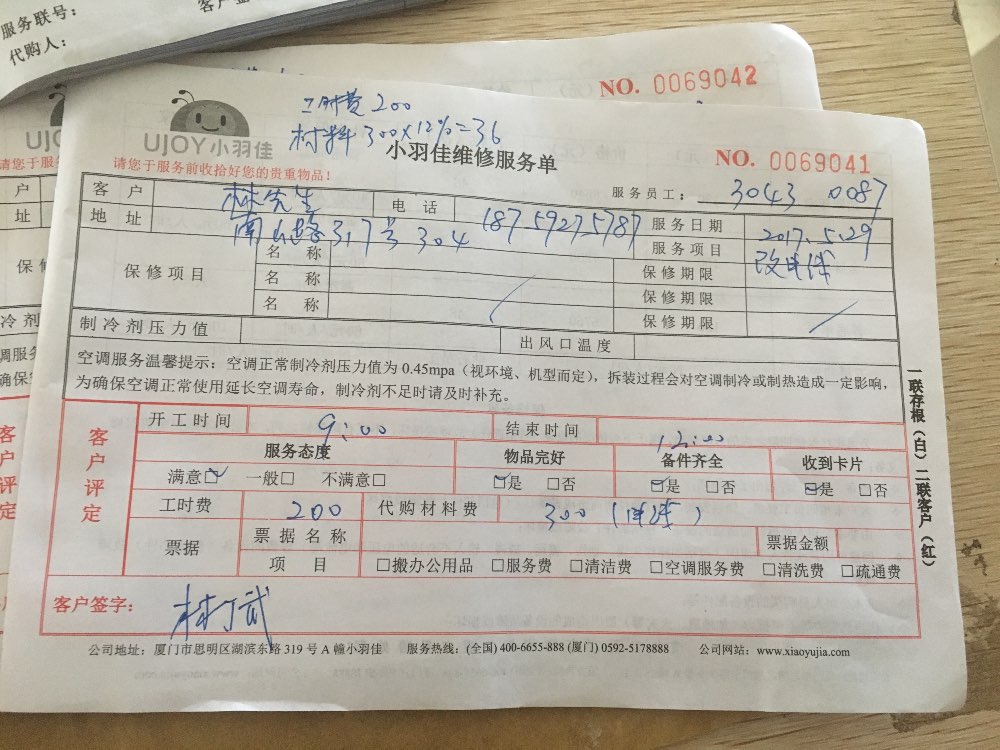 服务联号：
代购人：
NO. 0069042
工时费 200
材料 300×12%=36
UJOY小羽佳
小羽佳维修服务单
NO. 0069041
请您于服务前收拾好您的贵重物品！
服务员工： 3043 0087
客户 林先生 电话 18759275787 服务日期 2017.5.29
地址 南山路317号304 服务项目 改电线
保修项目 名称 保修期限
名称 保修期限
名称 保修期限
制冷剂压力值 出风口温度
空调服务温馨提示：空调正常制冷剂压力值为 0.45mpa（视环境、机型而定），拆装过程会对空调制冷或制热造成一定影响，
为确保空调正常使用延长空调寿命，制冷剂不足时请及时补充。
客户评定
开工时间 9:00 结束时间 12:00
服务态度 物品完好 备件齐全 收到卡片
满意☑ 一般□ 不满意□ ☑是 □否 ☑是 □否 ☑是 □否
工时费 200 代购材料费 300（电线）
票据 票据名称 票据金额
项目 □搬办公用品 □服务费 □清洁费 □空调服务费 □清洗费 □疏通费
客户签字：
公司地址：厦门市思明区湖滨东路 319 号 A 幢小羽佳 服务热线：(全国) 400-6655-888 (厦门) 0592-5178888 公司网站：www.xiaoyujia.com
一联存根（白）二联客户（红）